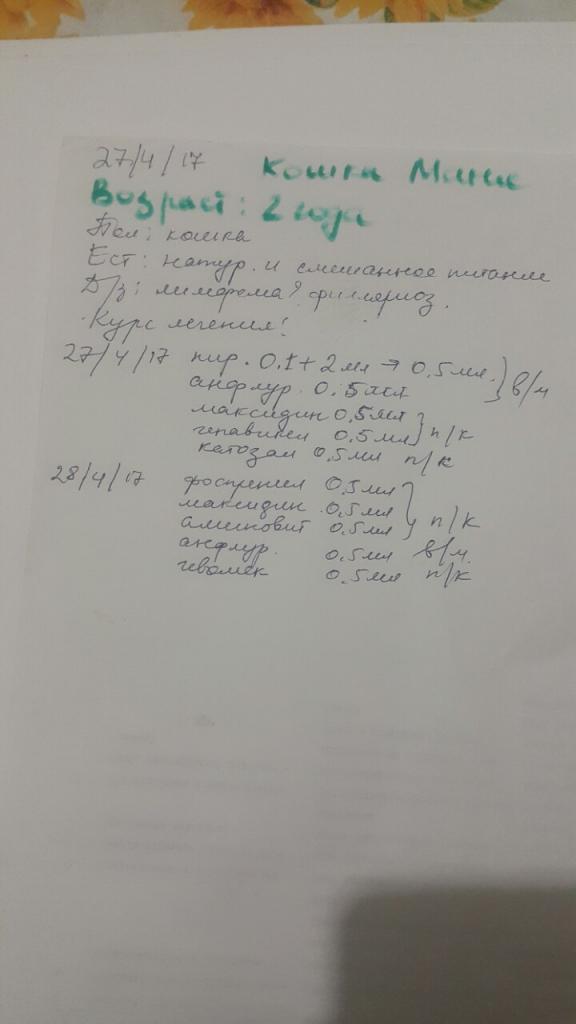 27/4/17 Кошка
Возраст: 2 года
Пол: кошка
Ест: натур. и смешанное питание
Д/з: лимфома? филяриоз.
Курс лечения!
27/4/17 пир. 0.1+2мл → 0,5мл. } в/м
анфлур. 0.5мл
максидин 0,5мл } п/к
гепавикел 0,5мл
катозал 0,5мл п/к
28/4/17 фоспренил 0,5мл
максидин 0,5мл } п/к
аминовит 0,5мл
анфлур. 0,5мл в/м.
0,5мл п/к